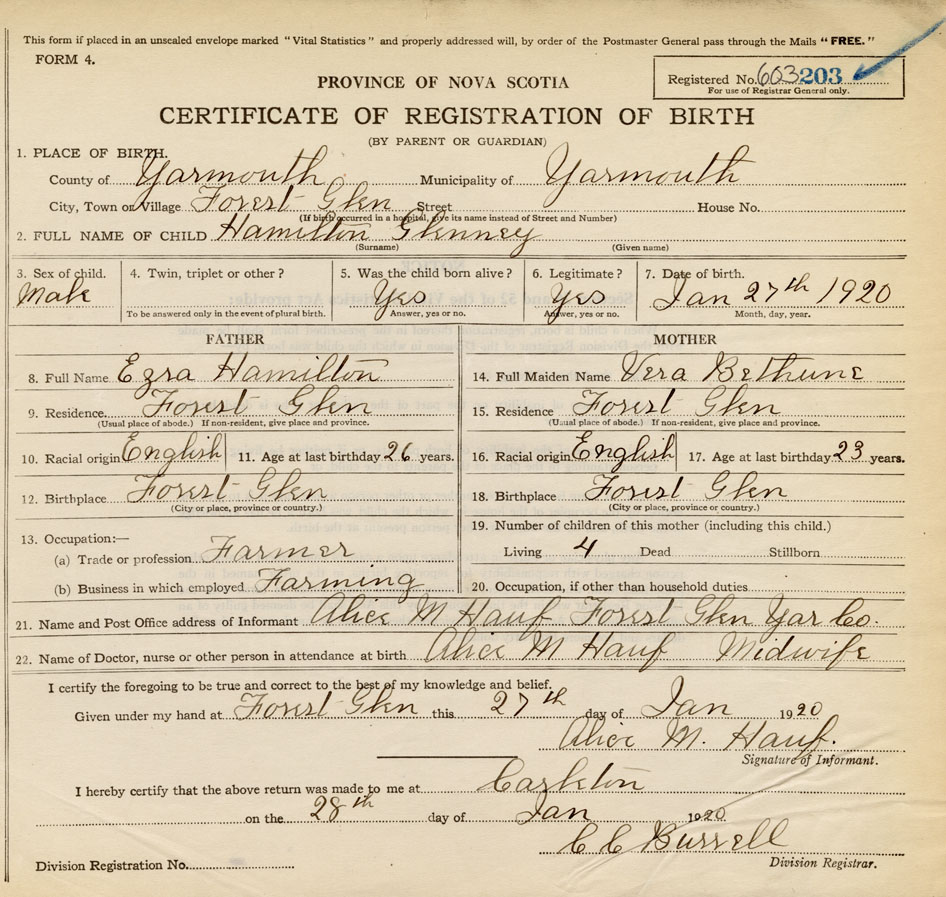 This form if placed in an unsealed envelope marked "Vital Statistics" and properly addressed will, by order of the Postmaster General pass through the Mails "FREE."
FORM 4.
Registered No. 603 203
For use of Registrar General only.
PROVINCE OF NOVA SCOTIA
CERTIFICATE OF REGISTRATION OF BIRTH
(BY PARENT OR GUARDIAN)
1. PLACE OF BIRTH.
County of Yarmouth Municipality of Yarmouth
City, Town or Village Forest Glen Street House No.
(If birth occurred in a hospital, give its name instead of Street and Number)
2. FULL NAME OF CHILD Hamilton Glenney
(Surname) (Given name)
3. Sex of child. 4. Twin, triplet or other? 5. Was the child born alive? 6. Legitimate? 7. Date of birth.
Male Yes Yes Jan 27th 1920
To be answered only in the event of plural birth. Answer, yes or no. Answer, yes or no. Month, day, year.
FATHER MOTHER
8. Full Name Ezra Hamilton 14. Full Maiden Name Vera Bethune
9. Residence Forest Glen 15. Residence Forest Glen
(Usual place of abode.) If non-resident, give place and province. (Usual place of abode.) If non-resident, give place and province.
10. Racial origin English 11. Age at last birthday 26 years. 16. Racial origin English 17. Age at last birthday 23 years.
12. Birthplace Forest Glen 18. Birthplace Forest Glen
(City or place, province or country.) (City or place, province or country.)
13. Occupation:— 19. Number of children of this mother (including this child.)
(a) Trade or profession Farmer Living 4 Dead Stillborn
(b) Business in which employed Farming 20. Occupation, if other than household duties
21. Name and Post Office address of Informant Alice M Hauf Forest Glen Yar Co.
22. Name of Doctor, nurse or other person in attendance at birth Alice M Hauf Midwife
I certify the foregoing to be true and correct to the best of my knowledge and belief.
Given under my hand at Forest Glen this 27th day of Jan 1920
Alice M. Hauf.
Signature of Informant.
I hereby certify that the above return was made to me at Carleton
on the 28th day of Jan 1920
C C Burrell
Division Registrar.
Division Registration No.